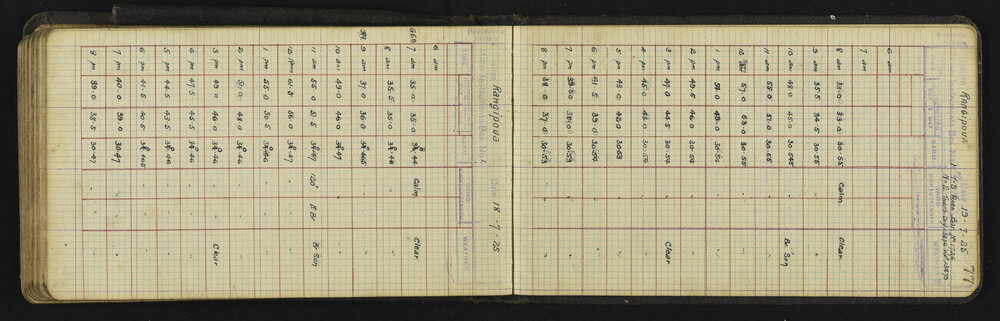 Station Rangipoua Date 18-7-25
Box No. 1.
TIME WIND WEATHER
6 am
7 am 35.0 35.0 30.44 Calm Clear
8 am 35.0 30.46 " "
9 am 37.0 36.0 30.465 " "
10 am 49.0 46.0 30.47 " "
11 am 55.0 51.5 30.47 120° Br B Sun
12 noon 61.5 56.0 30.47 " "
1 pm 55.0 50.5 30.46 " "
2 pm 30.46 " "
3 pm 49.0 46.0 30.46 " Clear
4 pm 47.5 45.5 30.46 " "
5 pm 44.5 43.5 30.46 " "
6 pm 41.5 40.5 30.465 " "
7 pm 40.0 39.0 30.47 " "
8 pm 39.0 38.5 30.47 " "
Rangipoua Date 19-7-25 77
WIND WEATHER
6 am
7 am 33.0 33.0 30.55 Calm Clear
8 am 30.55 " "
9 am 35.5 34.5 30.55 " "
10 am 48.0 45.0 30.545 " B Sun
11 am 55.0 51.0 30.55 " "
12 noon 57.0 53.0 30.55 " "
1 pm 30.54 " "
2 pm 49.5 46.0 30.54 " "
3 pm 47.0 30.54 " Clear
4 pm 45.0 30.54 " "
5 pm 43.0 42.0 " "
6 pm 41.5 39.0 30.54 " "
7 pm 38.0 30.53 " "
8 pm 38.0 37.0 30.53 " "